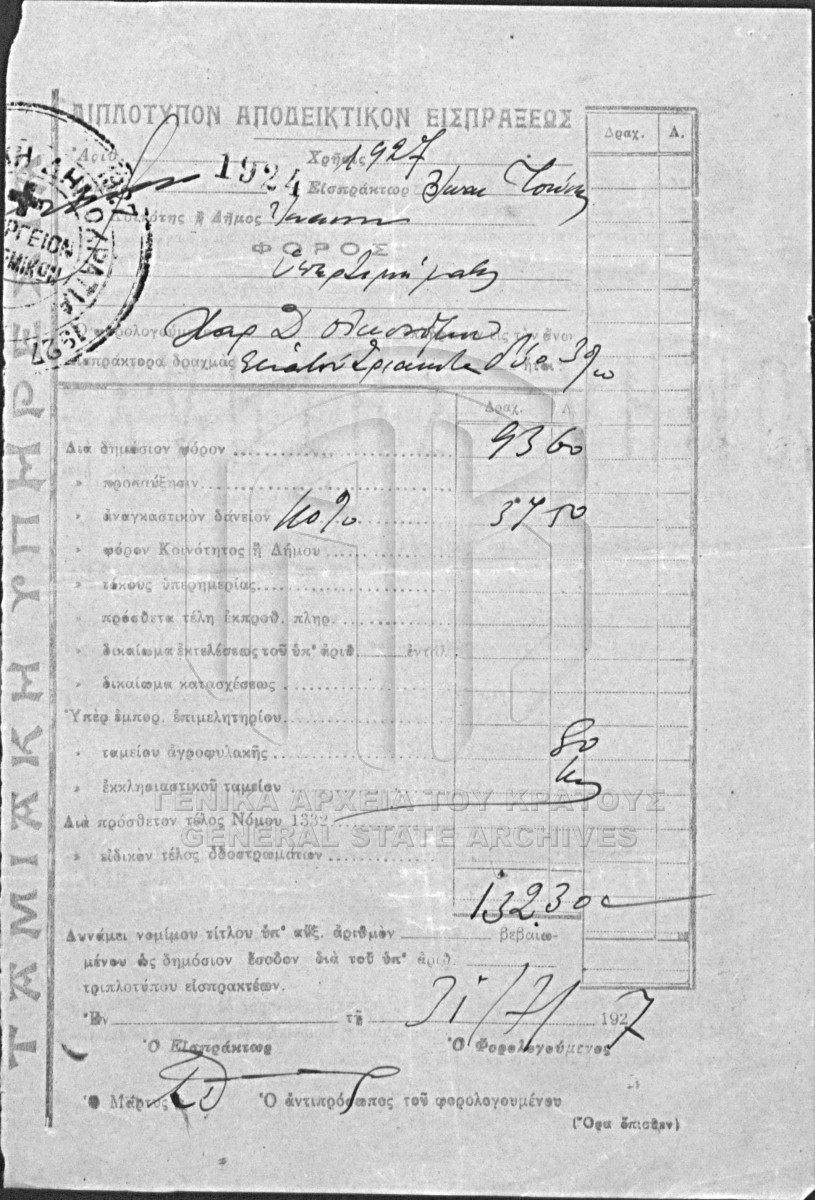 ΔΙΠΛΟΤΥΠΟΝ ΑΠΟΔΕΙΚΤΙΚΟΝ ΕΙΣΠΡΑΞΕΩΣ
Δραχ. Λ.
Ἀριθ. 1924 Χρῆσις 1927
Εἰσπράκτωρ
Κοινότης ἢ Δῆμος
ΦΟΡΟΣ
Ὁ φορολογούμενος εἰς τὸν ἄνω
Εἰσπράκτορα δραχμὰς Ἑκατὸν τριάκοντα δύο 30/00 ἤτοι:
Δραχ. Λ.
Διὰ δημόσιον φόρον 93 60
» προσαύξησιν
» ἀναγκαστικὸν δάνειον 40% 37 50
» φόρον Κοινότητος ἢ Δήμου
» τόκους ὑπερημερίας
» πρόσθετα τέλη ἐκπροθ. πληρ.
» δικαίωμα ἐκτελέσεως τοῦ ὑπ' ἀριθ. ἐντάλ.
» δικαίωμα κατασχέσεως
Ὑπὲρ ἐμπορ. ἐπιμελητηρίου
» ταμείου ἀγροφυλακῆς 80
» ἐκκλησιαστικοῦ ταμείου
ΓΕΝΙΚΑ ΑΡΧΕΙΑ ΤΟΥ ΚΡΑΤΟΥΣ
Διὰ πρόσθετον τέλος Νόμου 1332
GENERAL STATE ARCHIVES
» εἰδικὸν τέλος ὁδοστρωμάτων
132 30
Δυνάμει νομίμου τίτλου ὑπ' αὔξ. ἀριθμὸν βεβαιω-
μένου ὡς δημόσιον ἔσοδον διὰ τοῦ ὑπ' ἀριθ.
τριπλοτύπου εἰσπρακτέων.
Ἐν τῇ 31/7/ 1927
Ὁ Εἰσπράκτωρ Ὁ Φορολογούμενος
Ὁ Μάρτυς Ὁ ἀντιπρόσωπος τοῦ φορολογουμένου
(Ὅρα ὄπισθεν)
ΤΑΜΙΑΚΗ ΥΠΗΡΕΣΙΑ